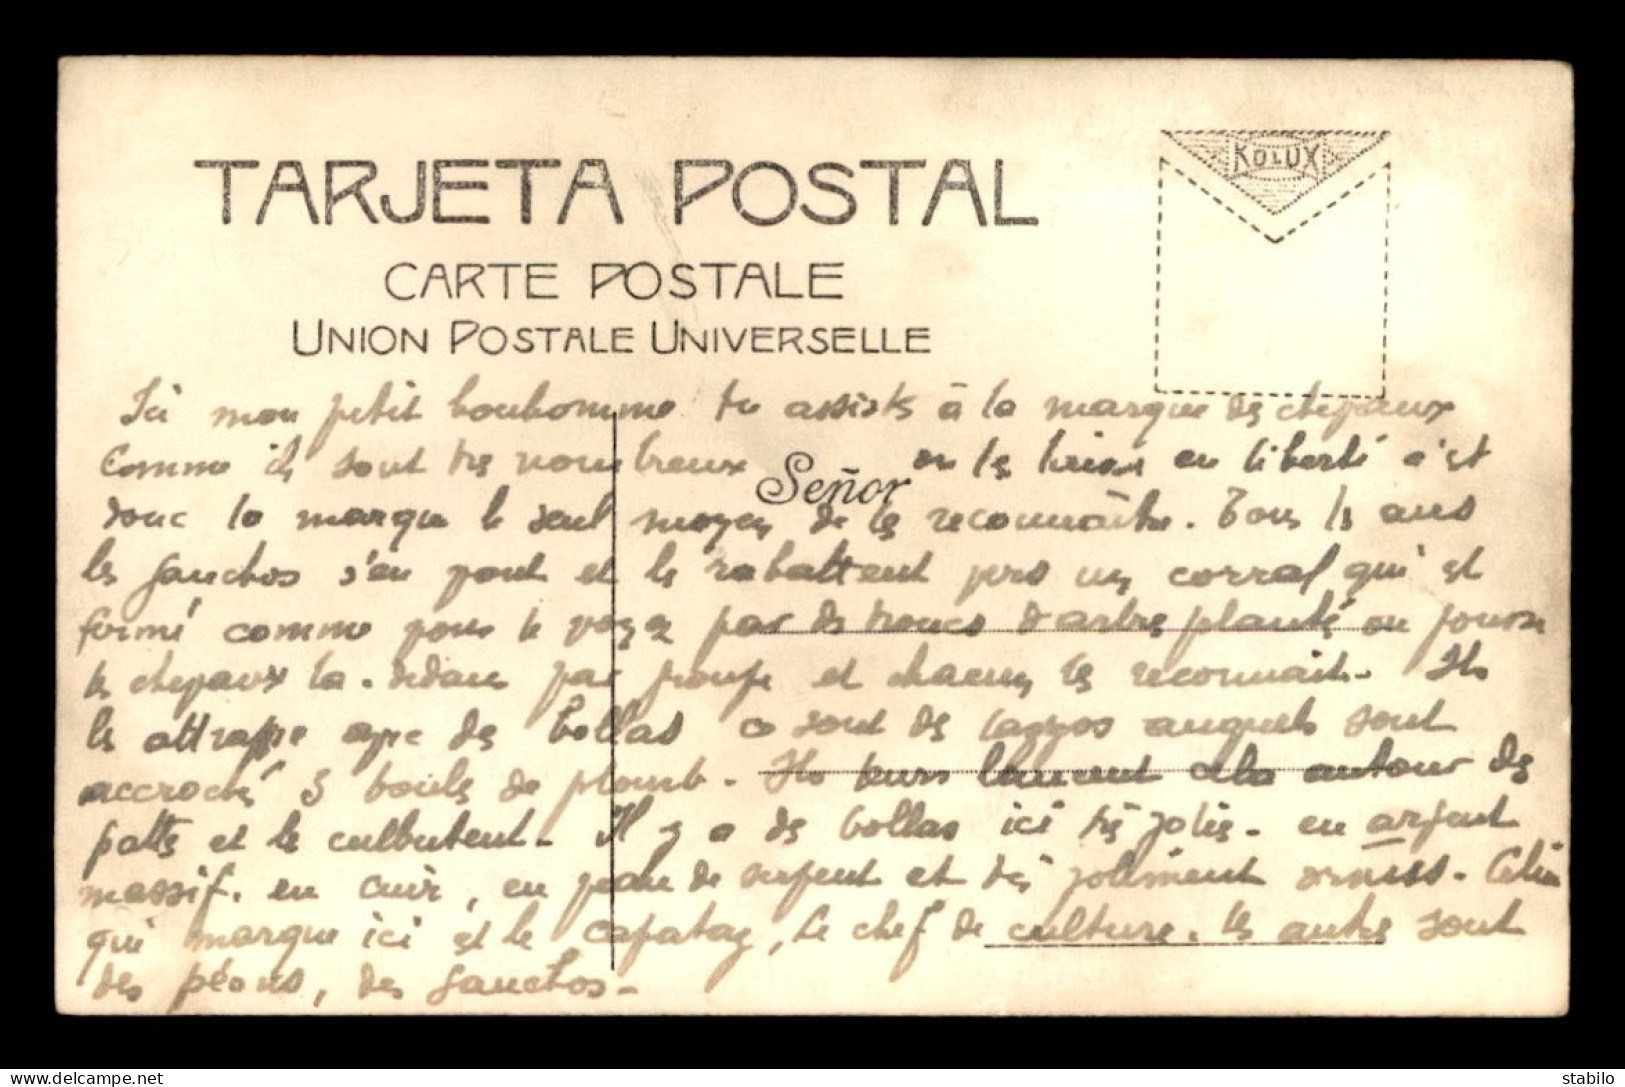 TARJETA POSTAL
KOLUX
CARTE POSTALE
UNION POSTALE UNIVERSELLE
Ici mon petit bonhomme tu assistes à la marque des chevaux
Comme ils sont très nombreux on les laisse en liberté c'est
Señor
donc la marque le seul moyen de les reconnaître. Tous les ans
les gauchos s'en vont et les rabattent vers un corral qui est
fermé comme vous le voyez par des troncs d'arbres plantés on pousse
les chevaux la-dedans par groupe et chacun les reconnait. Ils
les attrappe avec des bollas ce sont des lazzos auquels sont
accrochés 3 boules de plomb. Ils leurs lancent cela autour des
patts et les culbutent. Il y a des bollas ici très jolies. en argent
massif. en cuir, en peau de serpent et très joliment ornées. Celui
qui marque ici est le capataz, le chef de culture. les autres sont
des péons, des gauchos.
stabilo